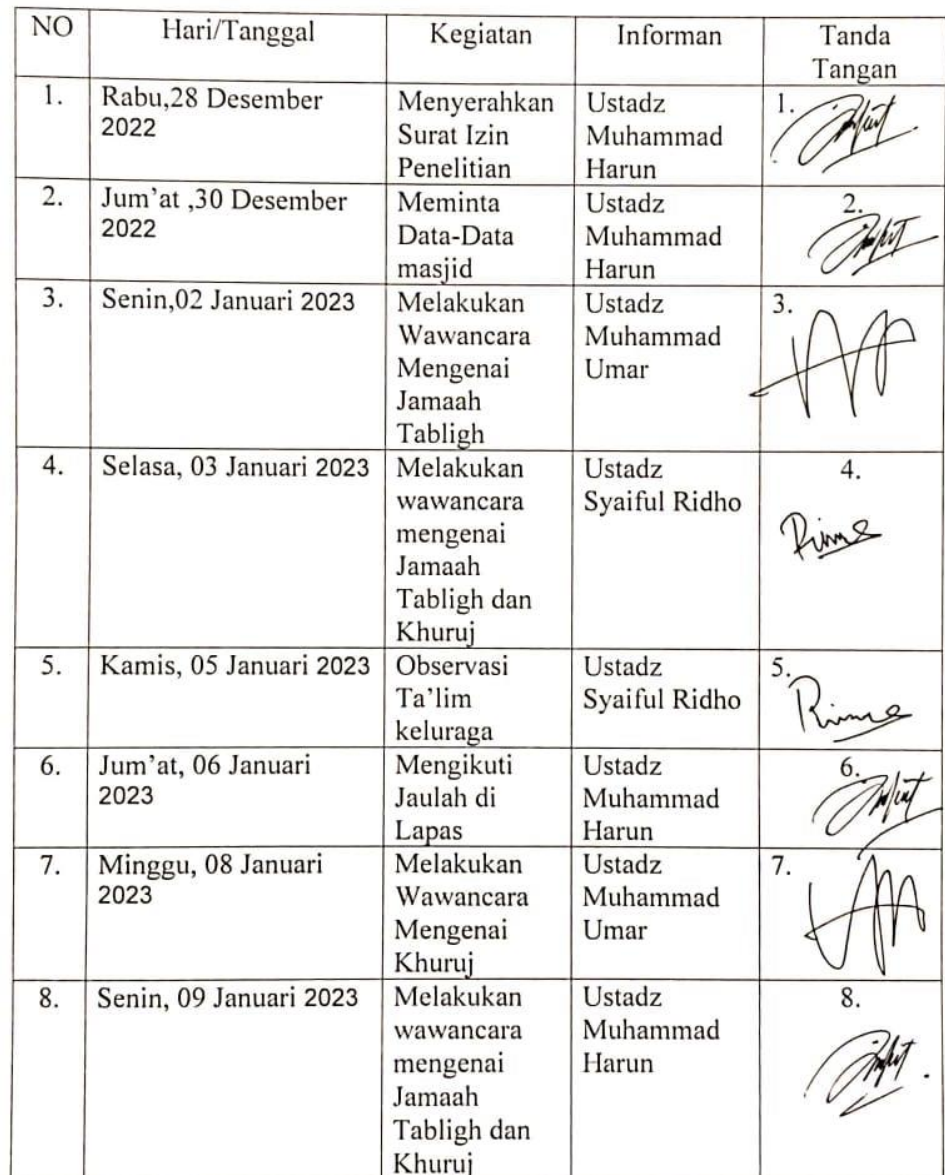 NO Hari/Tanggal Kegiatan Informan Tanda
Tangan
1. Rabu,28 Desember
2022
Menyerahkan
Surat Izin
Penelitian
Ustadz
Muhammad
Harun
1.
2. Jum'at ,30 Desember
2022
Meminta
Data-Data
masjid
Ustadz
Muhammad
Harun
2.
3. Senin,02 Januari 2023
Melakukan
Wawancara
Mengenai
Jamaah
Tabligh
Ustadz
Muhammad
Umar
3.
4. Selasa, 03 Januari 2023
Melakukan
wawancara
mengenai
Jamaah
Tabligh dan
Khuruj
Ustadz
Syaiful Ridho
4.
5. Kamis, 05 Januari 2023
Observasi
Ta'lim
keluraga
Ustadz
Syaiful Ridho
5.
6. Jum'at, 06 Januari
2023
Mengikuti
Jaulah di
Lapas
Ustadz
Muhammad
Harun
6.
7. Minggu, 08 Januari
2023
Melakukan
Wawancara
Mengenai
Khuruj
Ustadz
Muhammad
Umar
7.
8. Senin, 09 Januari 2023
Melakukan
wawancara
mengenai
Jamaah
Tabligh dan
Khuruj
Ustadz
Muhammad
Harun
8.